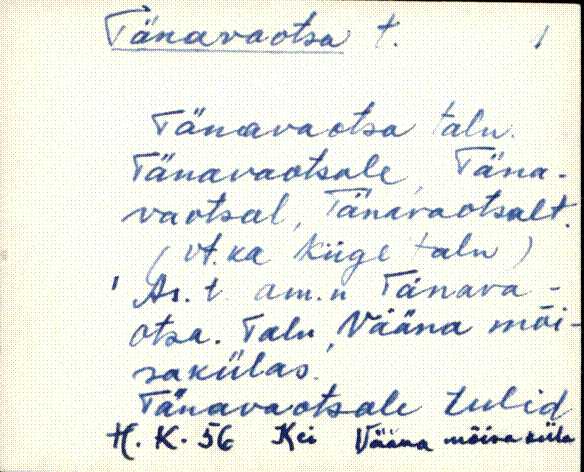 Tänavaotsa t. 1
Tänavaotsa talu.
Tänavaotsale, Täna-
vaotsal, Tänavaotsalt.
(vt. ka Kiige talu)
As. t. am. n Tänava-
otsa. Talu Vääna mõi-
sakülas.
Tänavaotsale tulid
H. K. 56 Kei Vääna mõisa küla